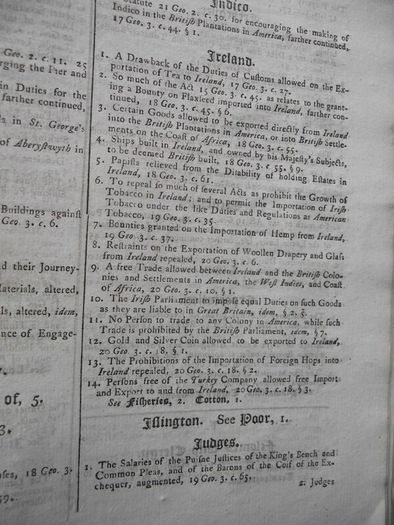 Indico.
Statute 21 Geo. 2. c. 30. for encouraging the making of
Indico in the British Plantations in America, farther continued,
17 Geo. 3. c. 44. § 1.
Ireland.
1. A Drawback of the Duties of Customs allowed on the Ex-
portation of Tea to Ireland, 17 Geo. 3. c. 27.
2. So much of the Act 15 Geo. 3. c. 45. as relates to the grant-
ing a Bounty on Flaxseed imported into Ireland, farther con-
tinued, 18 Geo. 3. c. 45. § 6.
3. Certain Goods allowed to be exported directly from Ireland
into the British Plantations in America, or into British Settle-
ments on the Coast of Africa, 18 Geo. 3. c. 55.
4. Ships built in Ireland, and owned by his Majesty's Subjects,
to be deemed British built, 18 Geo. 3. c. 55. § 9.
5. Papists relieved from the Disability of holding Estates in
Ireland, 18 Geo. 3. c. 61.
6. To repeal so much of several Acts as prohibit the Growth of
Tobacco in Ireland; and to permit the Importation of Irish
Tobacco under the like Duties and Regulations as American
Tobacco, 19 Geo. 3. c. 35.
7. Bounties granted on the Importation of Hemp from Ireland,
19 Geo. 3. c. 37.
8. Restraints on the Exportation of Woollen Drapery and Glass
from Ireland repealed, 20 Geo. 3. c. 6.
9. A free Trade allowed between Ireland and the British Colo-
nies and Settlements in America, the West Indies, and Coast
of Africa, 20 Geo. 3. c. 10. § 1.
10. The Irish Parliament to impose equal Duties on such Goods
as they are liable to in Great Britain, idem, § 2. &
11. No Person to trade to any Colony in America, while such
Trade is prohibited by the British Parliament, idem, § 7.
12. Gold and Silver Coin allowed to be exported to Ireland,
20 Geo. 3. c. 18. § 1.
13. The Prohibitions of the Importation of Foreign Hops into
Ireland repealed, 20 Geo. 3. c. 18. § 2.
14. Persons free of the Turkey Company allowed free Import
and Export to and from Ireland, 20 Geo. 3. c. 18. § 3.
See Fisheries, 2. Cotton, 1.
Islington. See Poor, 1.
Judges.
1. The Salaries of the Puisne Justices of the King's Bench and
Common Pleas, and of the Barons of the Coif of the Ex-
chequer, augmented, 19 Geo. 3. c. 65.
2. Judges
Geo. 2. c. 11. 25
rging the Pier and
in Duties for the
farther continued,
s in St. George's
of Aberystwyth in
Buildings against
Geo. 3. c. 6.
d their Journey-
aterials, altered,
ls, altered, idem,
nce of Engage-
of, 5.
3.
ses, 18 Geo. 3.
59.